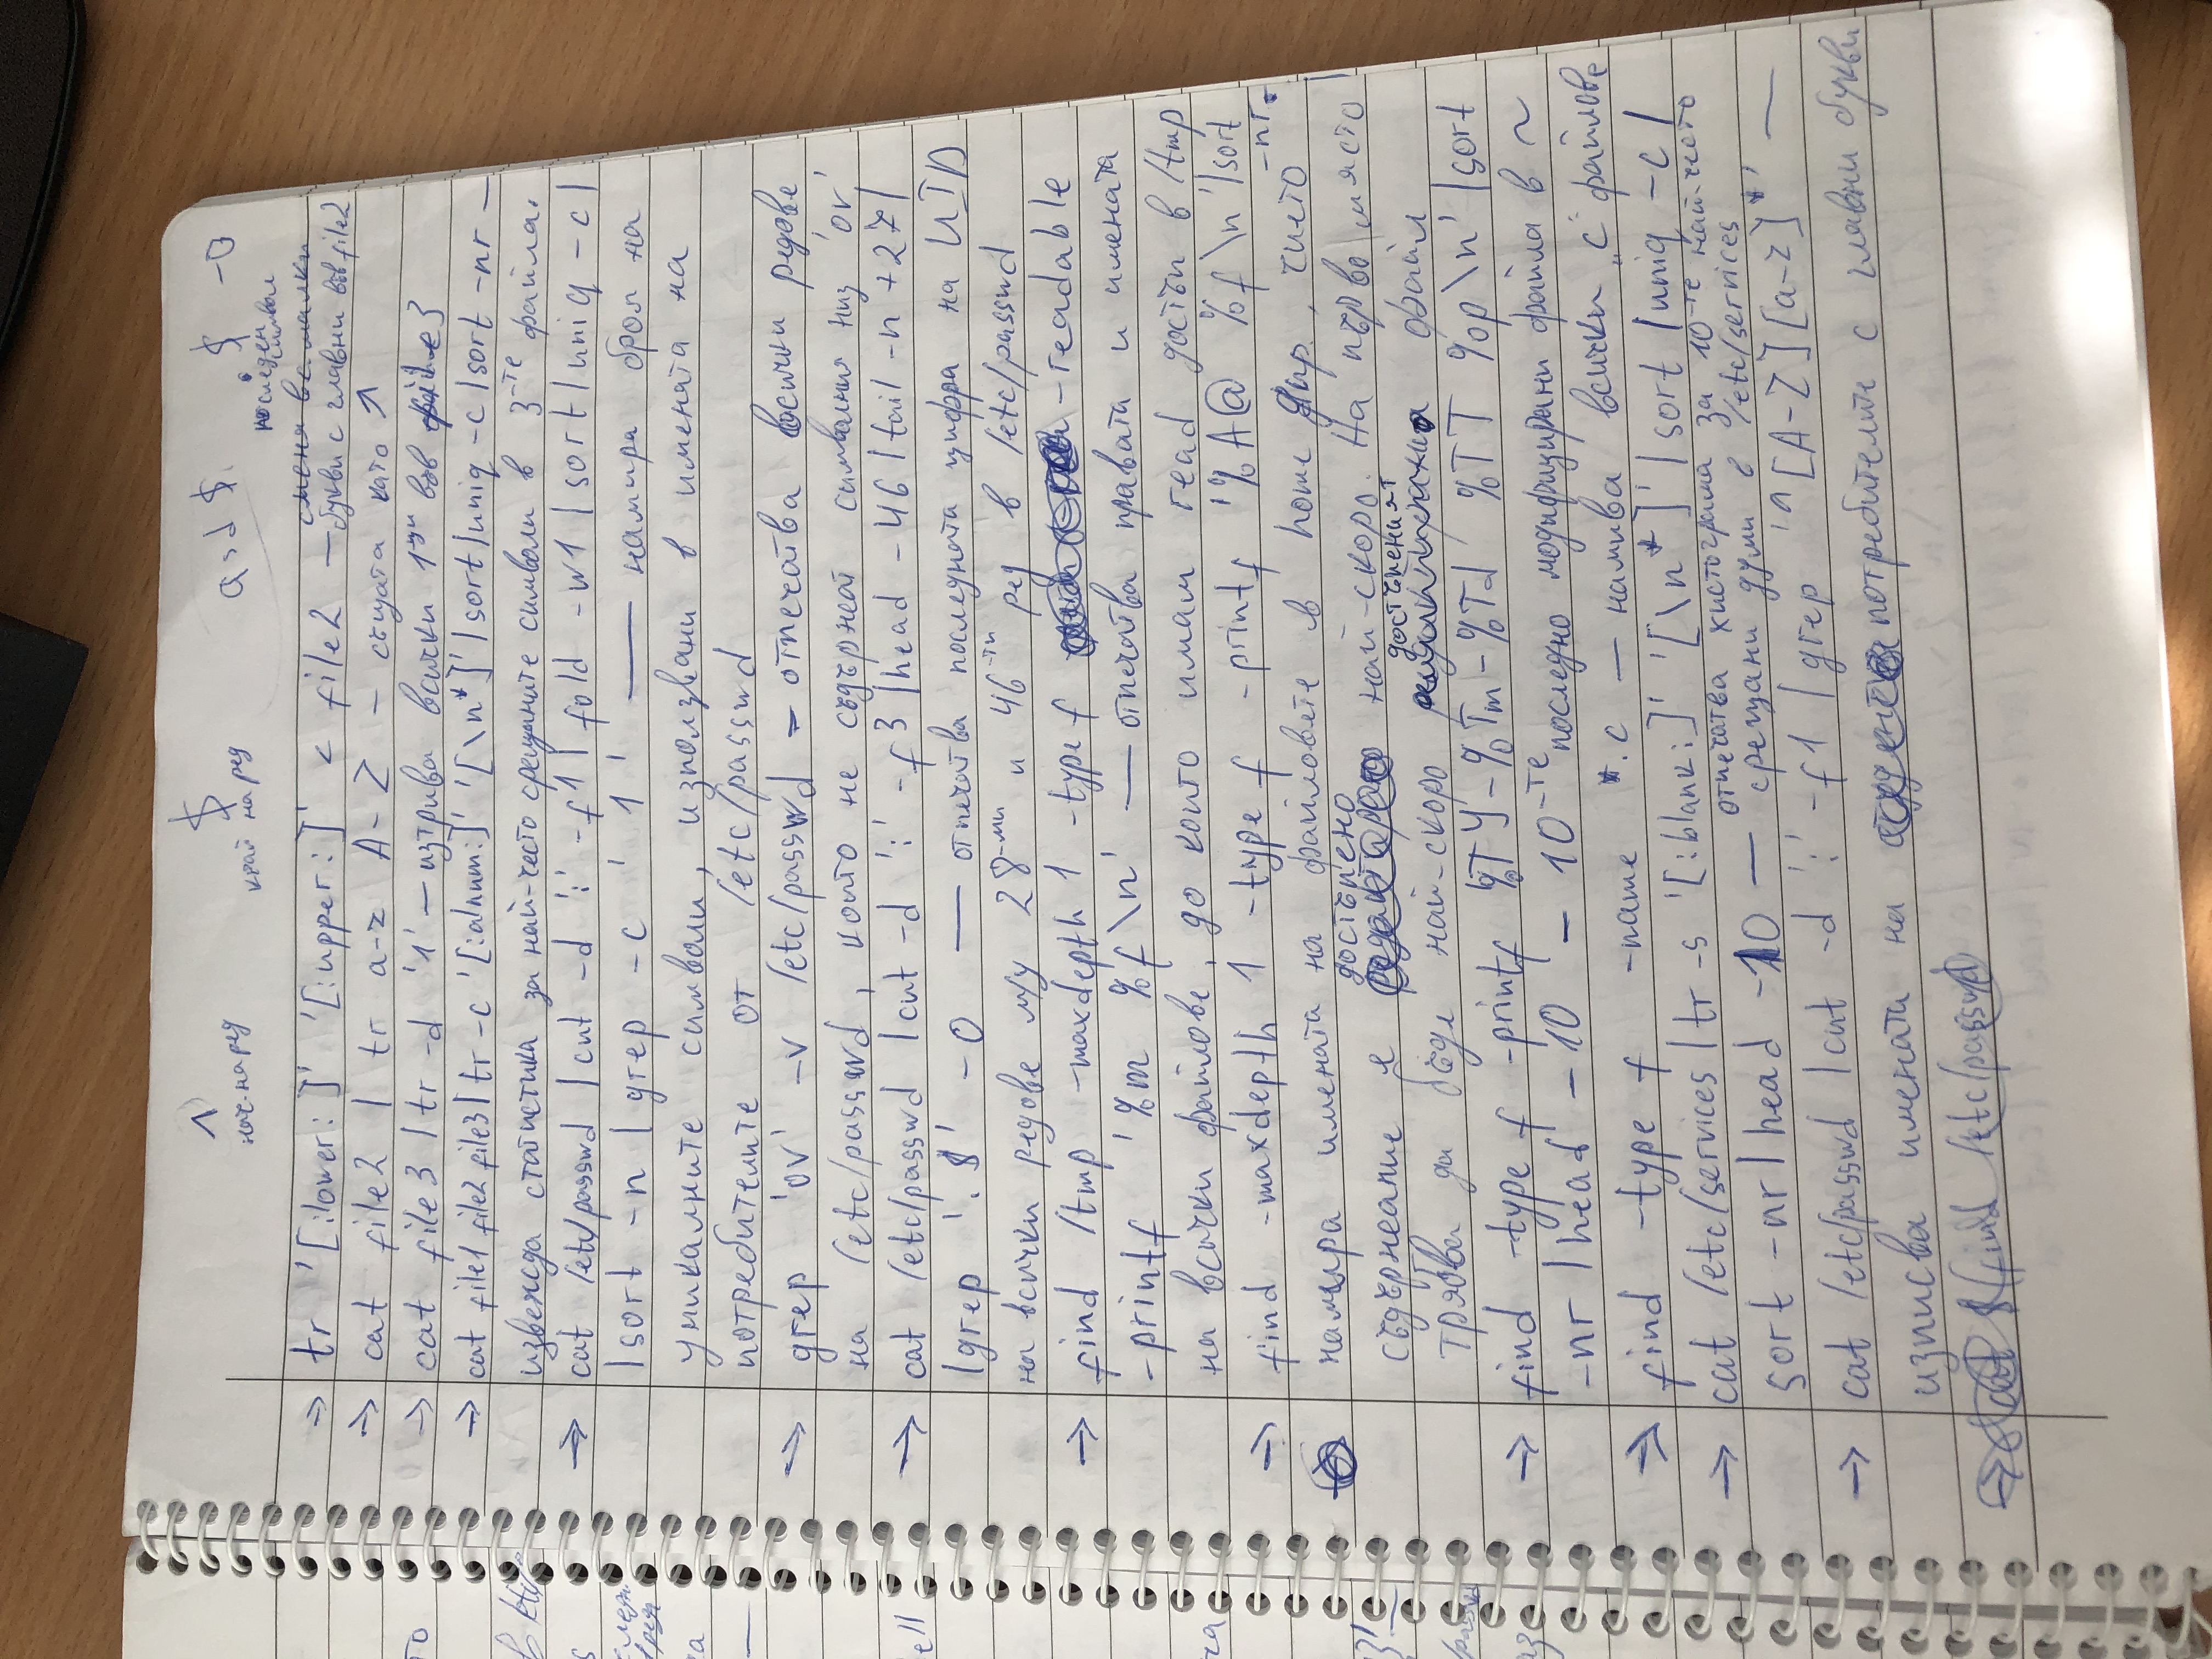 ^ $ asd $. .$ -o
нач. на ред край на ред последен символ
→ tr '[:lower:]' '[:upper:]' < file2 — сменя вс. малки
букви с главни във file2
→ cat file2 | tr a-z A-Z — същата като ↗
→ cat file3 | tr -d '1' — изтрива всички 1-ци във file3
→ cat file1 file2 file3 | tr -c '[:alnum:]' '[\n*]' | sort | uniq -c | sort -nr —
извежда статистика за най-често срещаните символи в 3-те файла.
→ cat /etc/passwd | cut -d ':' -f1 | fold -w1 | sort | uniq -c |
| sort -n | grep -c ' 1 ' — намира броя на
уникалните символи, използвани в имената на
потребителите от /etc/passwd
→ grep 'ov' -v /etc/passwd - отпечатва всички редове
на /etc/passwd, които не съдържат символния низ 'ov'
→ cat /etc/passwd | cut -d ':' -f3 | head -46 | tail -n +27 |
| grep '.$' -o — отпечатва последната цифра на UID
на всички редове м/у 28-ми и 46-ти ред в /etc/passwd
→ find /tmp -maxdepth 1 -type f -readable
-printf '%m %f\n' — отпечатва правата и имената
на всички файлове, до които имам read достъп в /tmp
→ find -maxdepth 1 -type f -printf '%A@ %f\n' | sort
-nr.
намира имената на файловете в home дир., чието
достъпено
съдържание е най-скоро. На първо място
достъпеният
трябва да бъде най-скоро файл
→ find -type f -printf '%TY-%Tm-%Td %TT %p\n' | sort
-nr | head -10 — 10-те последно модифицирани файла в ~
→ find -type f -name *.c — намива всички „c" файлове
→ cat /etc/services | tr -s '[:blank:]' '[\n*]' | sort | uniq -c |
отпечатва хистограма за 10-те най-често
sort -nr | head -10 — срещани думи в /etc/services
→ cat /etc/passwd | cut -d ':' -f1 | grep '^[A-Z][a-z]*' —
изписва имената на потребителите с главни букви
→ cat $(find /etc/passwd